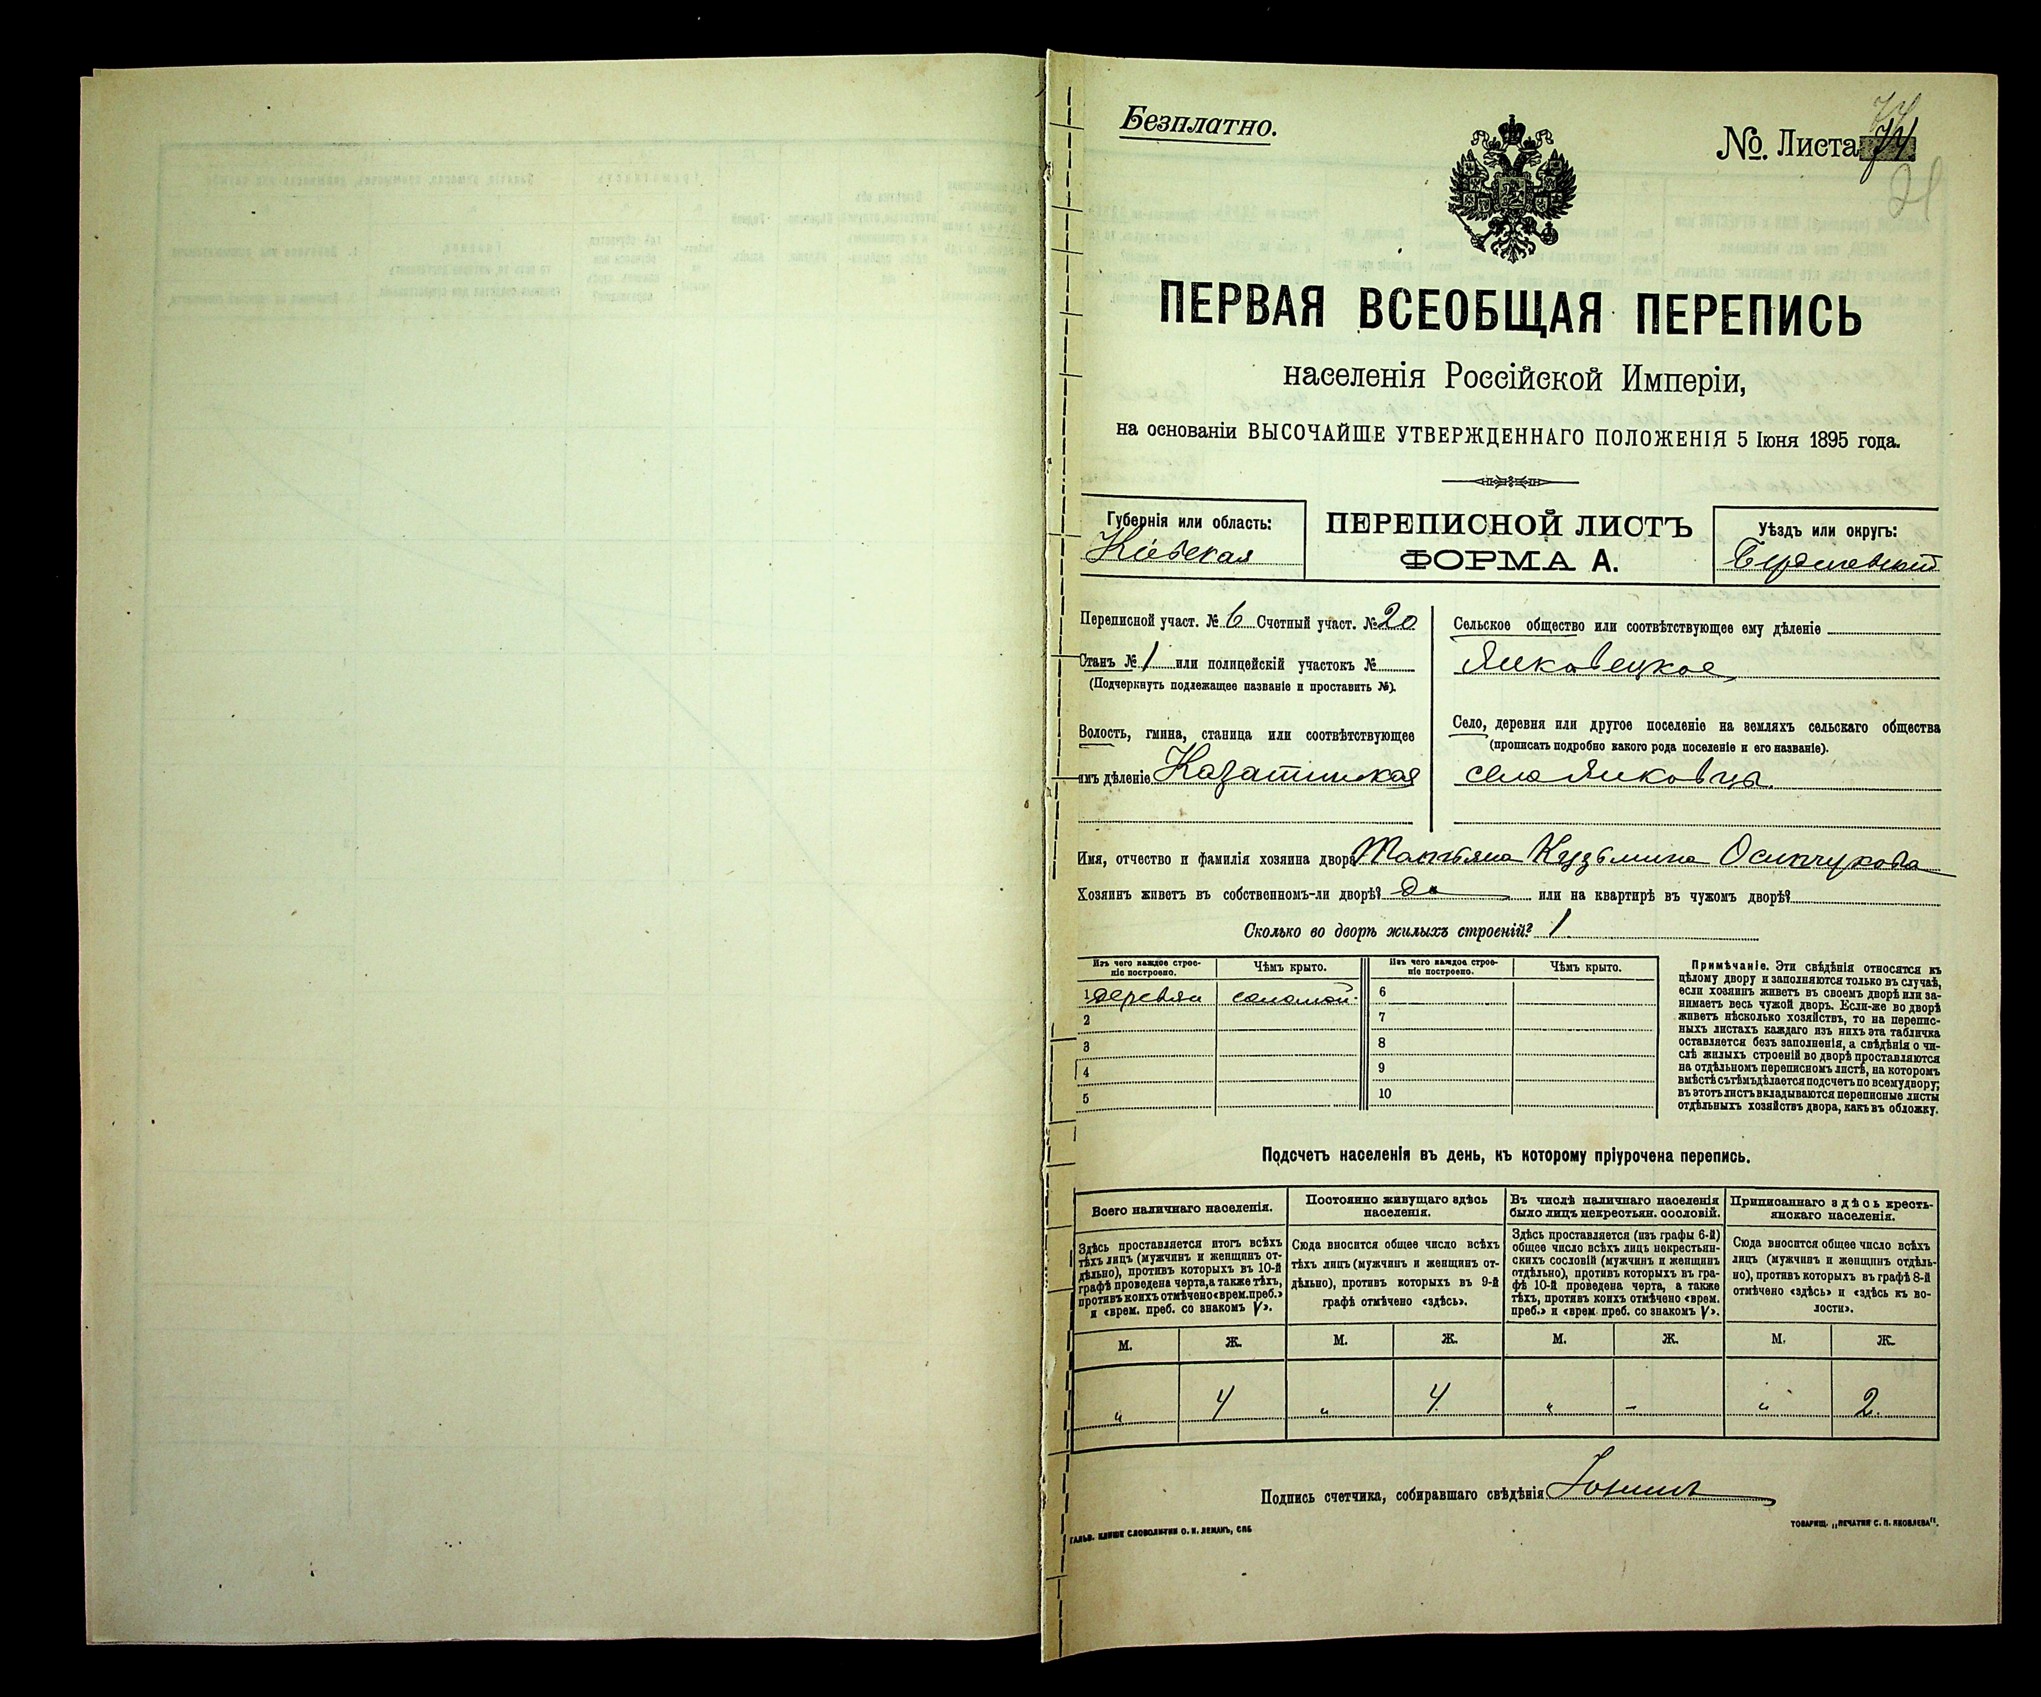 Безплатно.
№. Листа 74
74
ПЕРВАЯ ВСЕОБЩАЯ ПЕРЕПИСЬ
населенія Россійской Имперіи,
на основаніи ВЫСОЧАЙШЕ УТВЕРЖДЕННАГО ПОЛОЖЕНІЯ 5 Іюня 1895 года.
Губернія или область:
Кіевская
ПЕРЕПИСНОЙ ЛИСТЪ
ФОРМА А.
Уѣздъ или округъ:
Бердичевскій
Переписной участ. № 6 Счетный участ. № 20
Станъ № 1 или полицейскій участокъ №
(Подчеркнуть подлежащее названіе и проставить №).
Волость, гмина, станица или соотвѣтствующее
имъ дѣленіе Казатинская
Сельское общество или соотвѣтствующее ему дѣленіе
Янковецкое
Село, деревня или другое поселеніе на земляхъ сельскаго общества
(прописать подробно какого рода поселеніе и его названіе).
село Янковцы.
Имя, отчество и фамилія хозяина двора Татьяна Кузьмина Осипчукова
Хозяинъ живетъ въ собственномъ-ли дворѣ? да или на квартирѣ въ чужомъ дворѣ?
Сколько во дворѣ жилыхъ строеній? 1
Изъ чего каждое строе-
ніе построено.
Чѣмъ крыто.
Изъ чего каждое строе-
ніе построено.
Чѣмъ крыто.
1 деревян соломой. 6
2 7
3 8
4 9
5 10
Примѣчаніе. Эти свѣдѣнія относятся къ
цѣлому двору и заполняются только въ случаѣ,
если хозяинъ живетъ въ своемъ дворѣ или за-
нимаетъ весь чужой дворъ. Если-же во дворѣ
живетъ нѣсколько хозяйствъ, то на перепис-
ныхъ листахъ каждаго изъ нихъ эта табличка
оставляется безъ заполненія, а свѣдѣнія о чи-
слѣ жилыхъ строеній во дворѣ проставляются
на отдѣльномъ переписномъ листѣ, на которомъ
вмѣстѣ съ тѣмъ дѣлается подсчетъ по всему двору;
въ этотъ листъ вкладываются переписные листы
отдѣльныхъ хозяйствъ двора, какъ въ обложку.
Подсчетъ населенія въ день, къ которому пріурочена перепись.
Всего наличнаго населенія.
Здѣсь проставляется итогъ всѣхъ
тѣхъ лицъ (мужчинъ и женщинъ от-
дѣльно), противъ которыхъ въ 10-й
графѣ проведена черта, а также тѣхъ,
противъ коихъ отмѣчено «врем. преб.»
и «врем. преб. со знакомъ V».
Постоянно живущаго здѣсь
населенія.
Сюда вносится общее число всѣхъ
тѣхъ лицъ (мужчинъ и женщинъ от-
дѣльно), противъ которыхъ въ 9-й
графѣ отмѣчено «здѣсь».
Въ числѣ наличнаго населенія
было лицъ некрестьян. сословій.
Здѣсь проставляется (изъ графы 6-й)
общее число всѣхъ лицъ некрестьян-
скихъ сословій (мужчинъ и женщинъ
отдѣльно), противъ которыхъ въ гра-
фѣ 10-й проведена черта, а также
тѣхъ, противъ коихъ отмѣчено «врем.
преб.» и «врем. преб. со знакомъ V».
Приписаннаго здѣсь кресть-
янскаго населенія.
Сюда вносится общее число всѣхъ
лицъ (мужчинъ и женщинъ отдѣль-
но), противъ которыхъ въ графѣ 8-й
отмѣчено «здѣсь» и «здѣсь къ во-
лости».
М. Ж. М. Ж. М. Ж. М. Ж.
„ 4 „ 4 „ – „ 2.
Подпись счетчика, собиравшаго свѣдѣнія
ГАЛЬВ. КЛИШЕ СЛОВОЛИТНИ О. И. ЛЕМАНЪ, СПБ
ТОВАРИЩ. „ПЕЧАТНЯ С. П. ЯКОВЛЕВА".